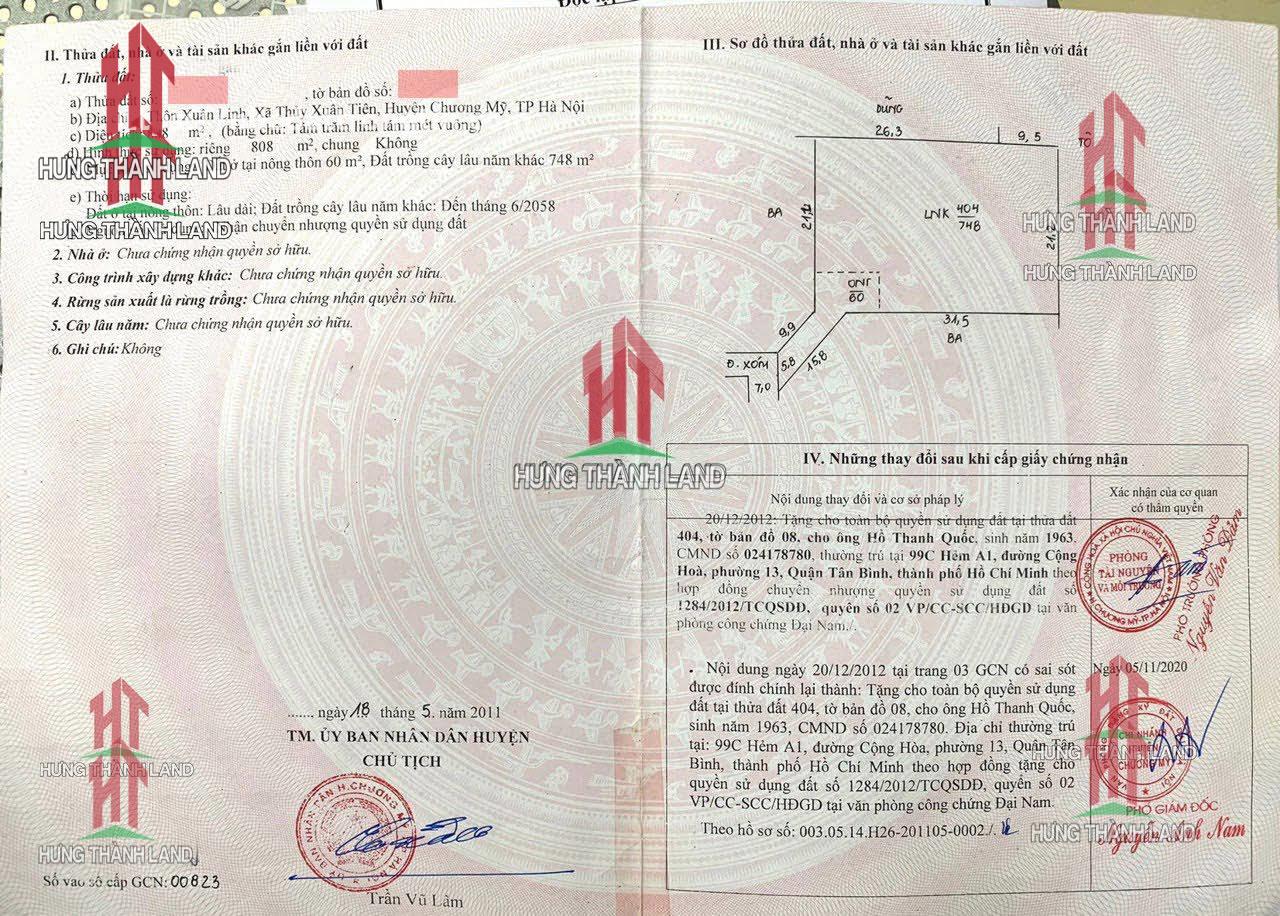 II. Thửa đất, nhà ở và tài sản khác gắn liền với đất
1. Thửa đất:
a) Thửa đất số: , tờ bản đồ số:
b) Địa chỉ: Thôn Xuân Linh, Xã Thủy Xuân Tiên, Huyện Chương Mỹ, TP Hà Nội
c) Diện tích: 808 m², (bằng chữ: Tám trăm linh tám mét vuông)
d) Hình thức sử dụng: riêng 808 m², chung Không
ở tại nông thôn 60 m², Đất trồng cây lâu năm khác 748 m²
e) Thời hạn sử dụng:
Đất ở tại nông thôn: Lâu dài; Đất trồng cây lâu năm khác: Đến tháng 6/2058
nhận chuyển nhượng quyền sử dụng đất
2. Nhà ở: Chưa chứng nhận quyền sở hữu.
3. Công trình xây dựng khác: Chưa chứng nhận quyền sở hữu.
4. Rừng sản xuất là rừng trồng: Chưa chứng nhận quyền sở hữu.
5. Cây lâu năm: Chưa chứng nhận quyền sở hữu.
6. Ghi chú: Không
......, ngày 18 tháng 5. năm 2011
TM. ỦY BAN NHÂN DÂN HUYỆN
CHỦ TỊCH
Trần Vũ Lâm
Số vào sổ cấp GCN: 00823
III. Sơ đồ thửa đất, nhà ở và tài sản khác gắn liền với đất
DŨNG
26,3
9,5
TÔ
BA
21,2
LNK 404
748
21,2
ONT
60
9,9
31,5
BA
Đ. XÓM
5,8
15,8
7,0
IV. Những thay đổi sau khi cấp giấy chứng nhận
Nội dung thay đổi và cơ sở pháp lý
Xác nhận của cơ quan
có thẩm quyền
20/12/2012: Tặng cho toàn bộ quyền sử dụng đất tại thửa đất
404, tờ bản đồ 08, cho ông Hồ Thanh Quốc, sinh năm 1963,
CMND số 024178780, thường trú tại 99C Hẻm A1, đường Cộng
Hoà, phường 13, Quận Tân Bình, thành phố Hồ Chí Minh theo
hợp đồng chuyển nhượng quyền sử dụng đất số
1284/2012/TCQSDĐ, quyển số 02 VP/CC-SCC/HĐGD tại văn
phòng công chứng Đại Nam./.
PHÒNG
TÀI NGUYÊN
VÀ MÔI TRƯỜNG
CỘNG HOÀ XÃ HỘI CHỦ NGHĨA VIỆT NAM
H.CHƯƠNG MỸ-TP.HÀ NỘI
PHÓ TRƯỞNG PHÒNG
Nguyễn Văn Dân
. Nội dung ngày 20/12/2012 tại trang 03 GCN có sai sót
được đính chính lại thành: Tặng cho toàn bộ quyền sử dụng
đất tại thửa đất 404, tờ bản đồ 08, cho ông Hồ Thanh Quốc,
sinh năm 1963, CMND số 024178780. Địa chỉ thường trú
tại: 99C Hẻm A1, đường Cộng Hòa, phường 13, Quận Tân
Bình, thành phố Hồ Chí Minh theo hợp đồng tặng cho
quyền sử dụng đất số 1284/2012/TCQSDĐ, quyển số 02
VP/CC-SCC/HĐGD tại văn phòng công chứng Đại Nam.
Theo hồ sơ số: 003.05.14.H26-201105-0002./.
Ngày 05/11/2020
CHI NHÁNH
CHƯƠNG MỸ
PHÓ GIÁM ĐỐC
Nguyễn Anh Nam
HƯNG THÀNH LAND
HƯNG THÀNH LAND
HƯNG THÀNH LAND
HƯNG THÀNH LAND
HƯNG THÀNH LAND
HƯNG THÀNH LAND
HƯNG THÀNH LAND
HƯNG THÀNH LAND
HƯNG THÀNH LAND